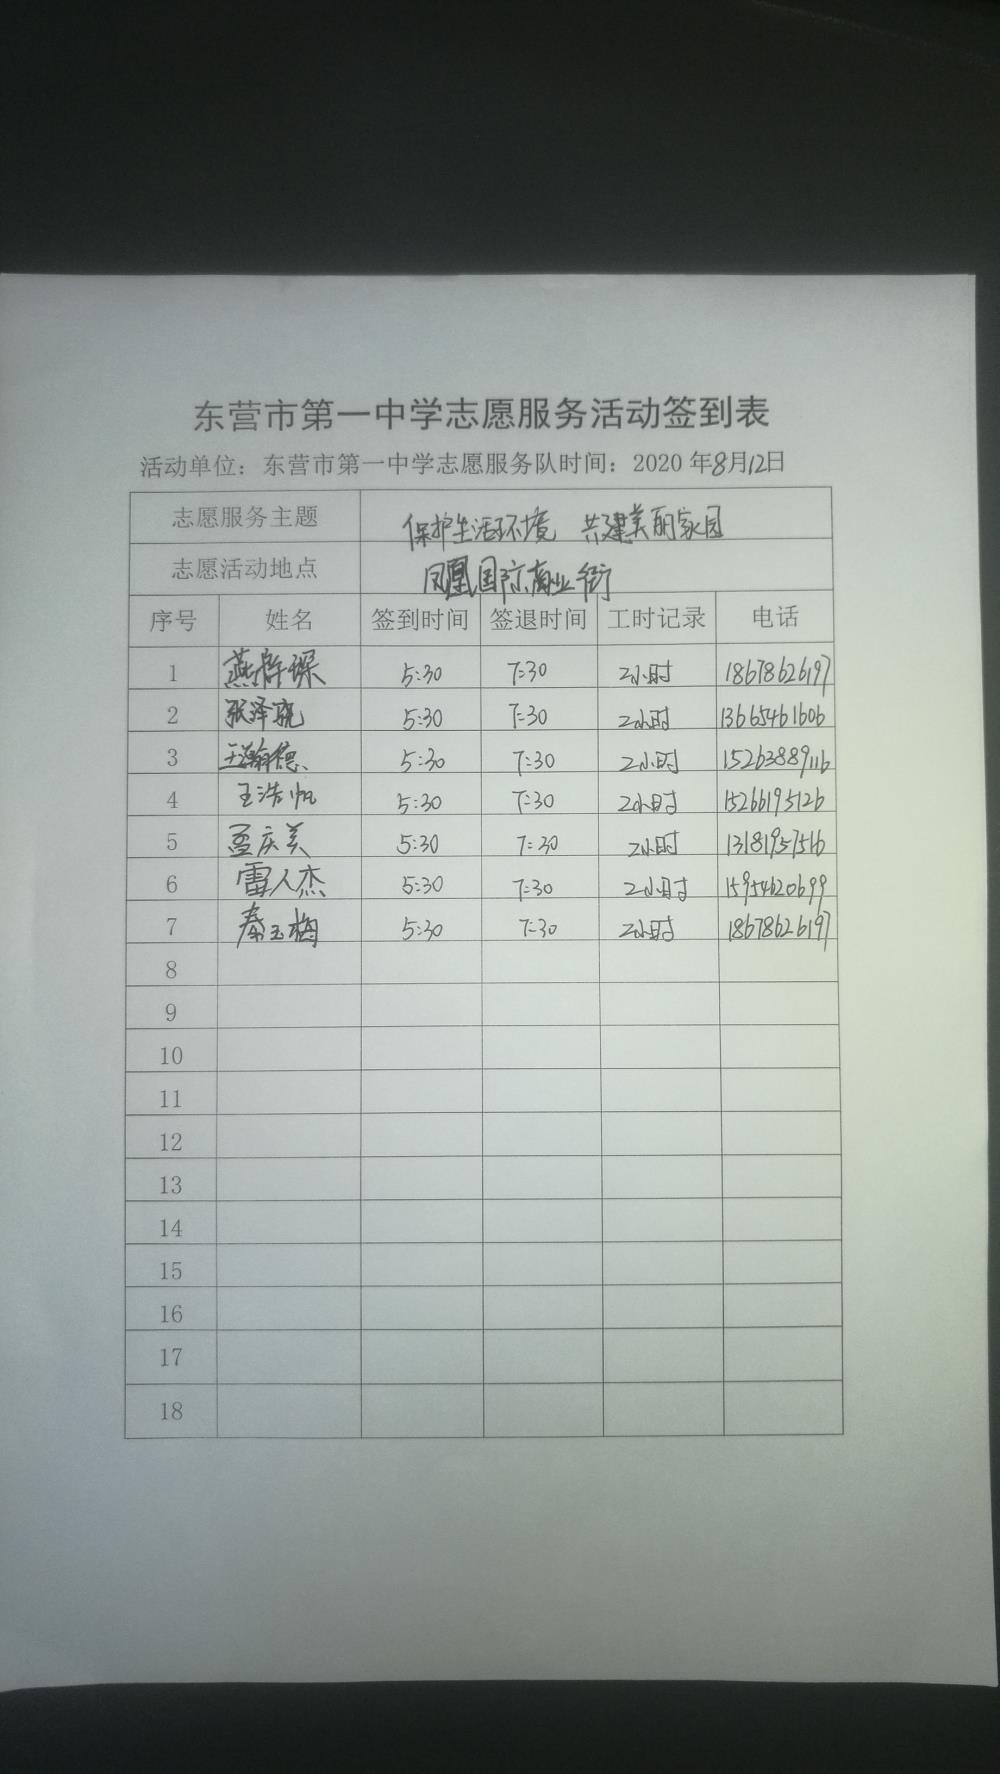 东营市第一中学志愿服务活动签到表
活动单位：东营市第一中学志愿服务队时间：2020 年8月12日
志愿服务主题 保护生活环境 共建美丽家园
志愿活动地点 凤凰国际商业街
序号 姓名 签到时间 签退时间 工时记录 电话
1 燕 5:30 7:30 2小时 18678626197
2 张泽 5:30 7:30 2小时 13665461606
3 王瀚德 5:30 7:30 2小时 15263889116
4 王浩帆 5:30 7:30 2小时 15266195126
5 孟庆美 5:30 7:30 2小时 13181957516
6 雷人杰 5:30 7:30 2小时 15954620699
7 秦玉梅 5:30 7:30 2小时 18678626197
8
9
10
11
12
13
14
15
16
17
18